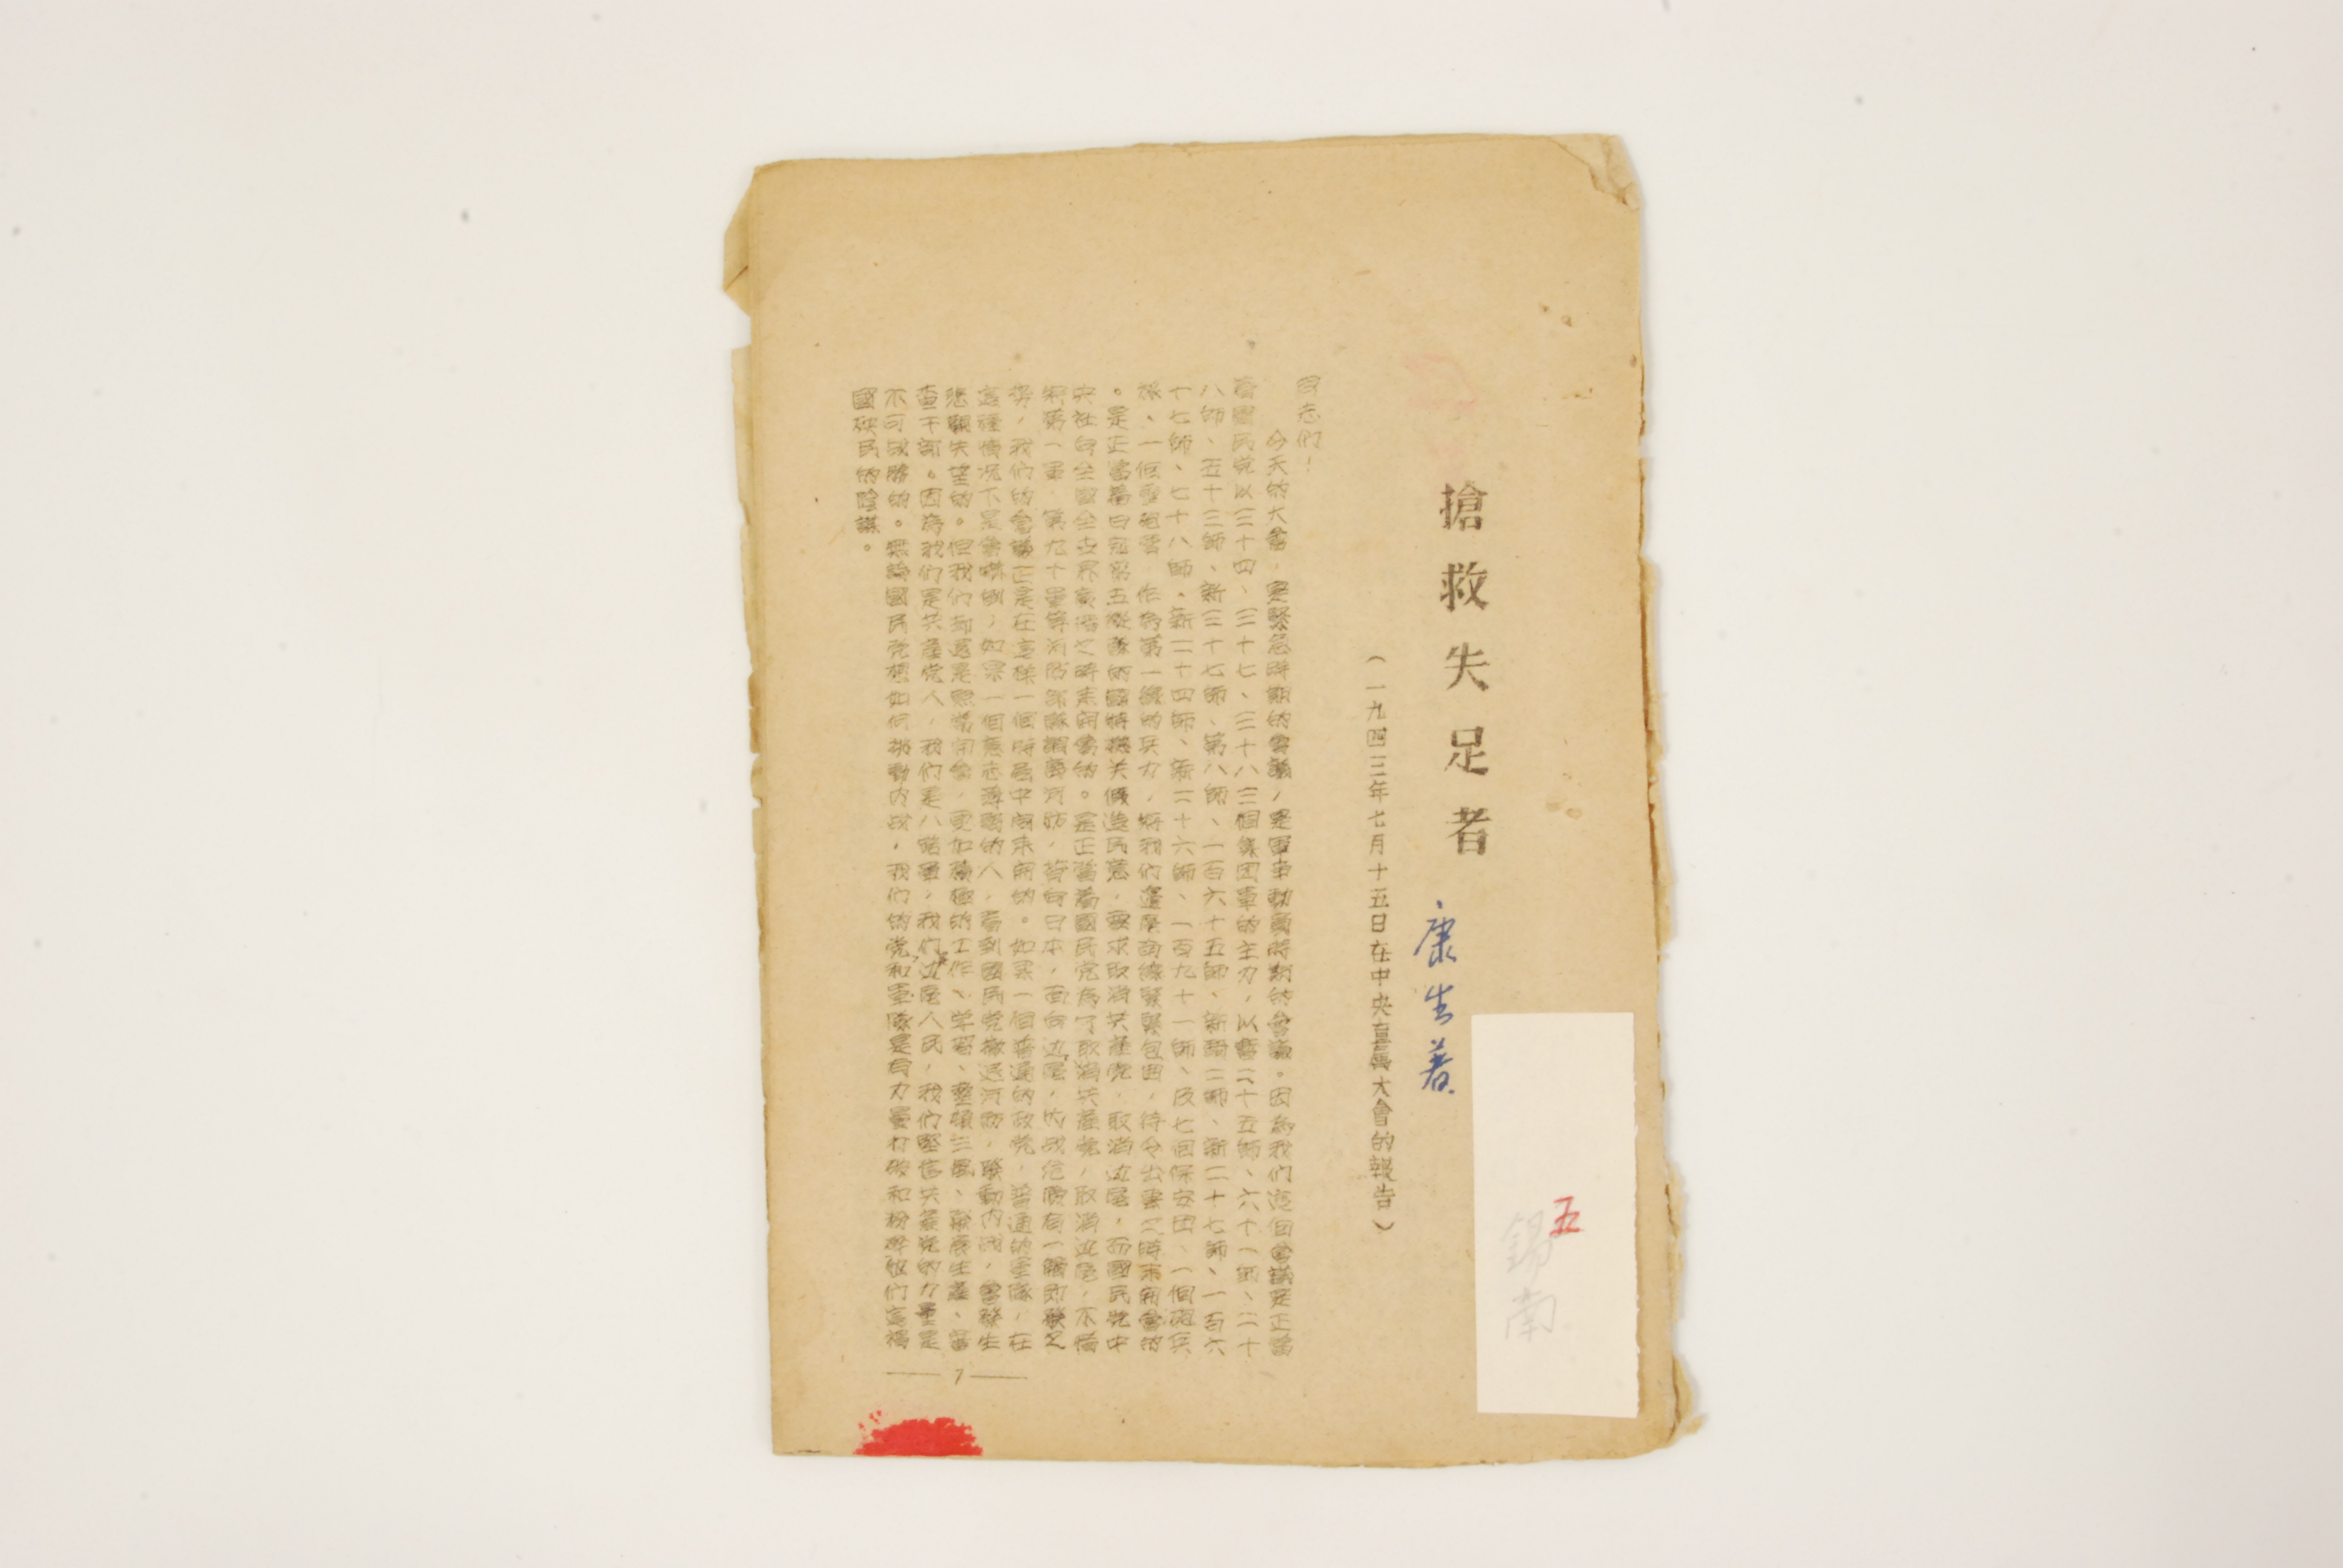 搶救失足者
康生著
(一九四三年七月十五日在中央直屬大會的報告)
同志們!
今天的大會,是緊急時期的會議,是軍事動員時期的會議。因為我们這個會議是正當
着國民党以三十四、三十七、三十八三個集団軍的主力,以暫二十五師、六十一師、二十
八師、五十三師、新三十七師、第八師、一百六十五師、新師、新二十七師、一百六
十七師、七十八師。新二十四師、新二十六師、一百九十一師、及七個保安団、一個砲兵
旅、一個重砲營,作為第一線的兵力,將我们邊區包囲,待令出擊之時來開會的
。是正當着日寇第五縱隊的國特機关假造民意,要求取消共產党,取消边區,而國民党中
央社向全國全世界廣播之時來開會的。是正當着國民党為了取消共產党,取消边區,不惜
將第一軍、第九十軍等河防部隊調離河防,背向日本,面向边區,内战危險有一觸即發之
勢,我们的會議正是在這樣一個時局中間來開的。如果一個普通的政党,普通的軍隊,在
這種情况下是會嚇倒,如果一個意志薄弱的人,看到國民党撤退河防,發動内战,會發生
悲觀失望的。但我们却還是照常開會,更加積極的工作、学習、整頓三風、發展生產、審
查干部。因為我们是共產党人,我们是八路軍,我们边區人民,我们堅信共產党的力量是
不可战勝的。無論國民党想如何發動内战,我们的党和軍隊是有力量打破和粉碎他们這禍
國殃民的陰謀。
7
五
錫南